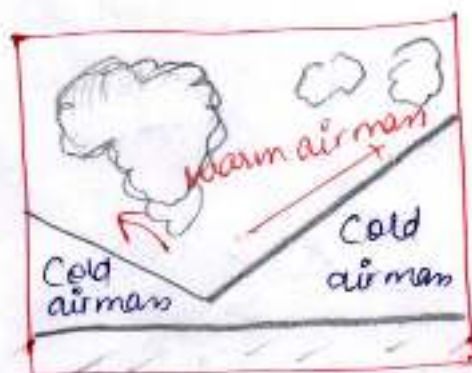 Warm air mass
Cold
air mass
Cold
air mass